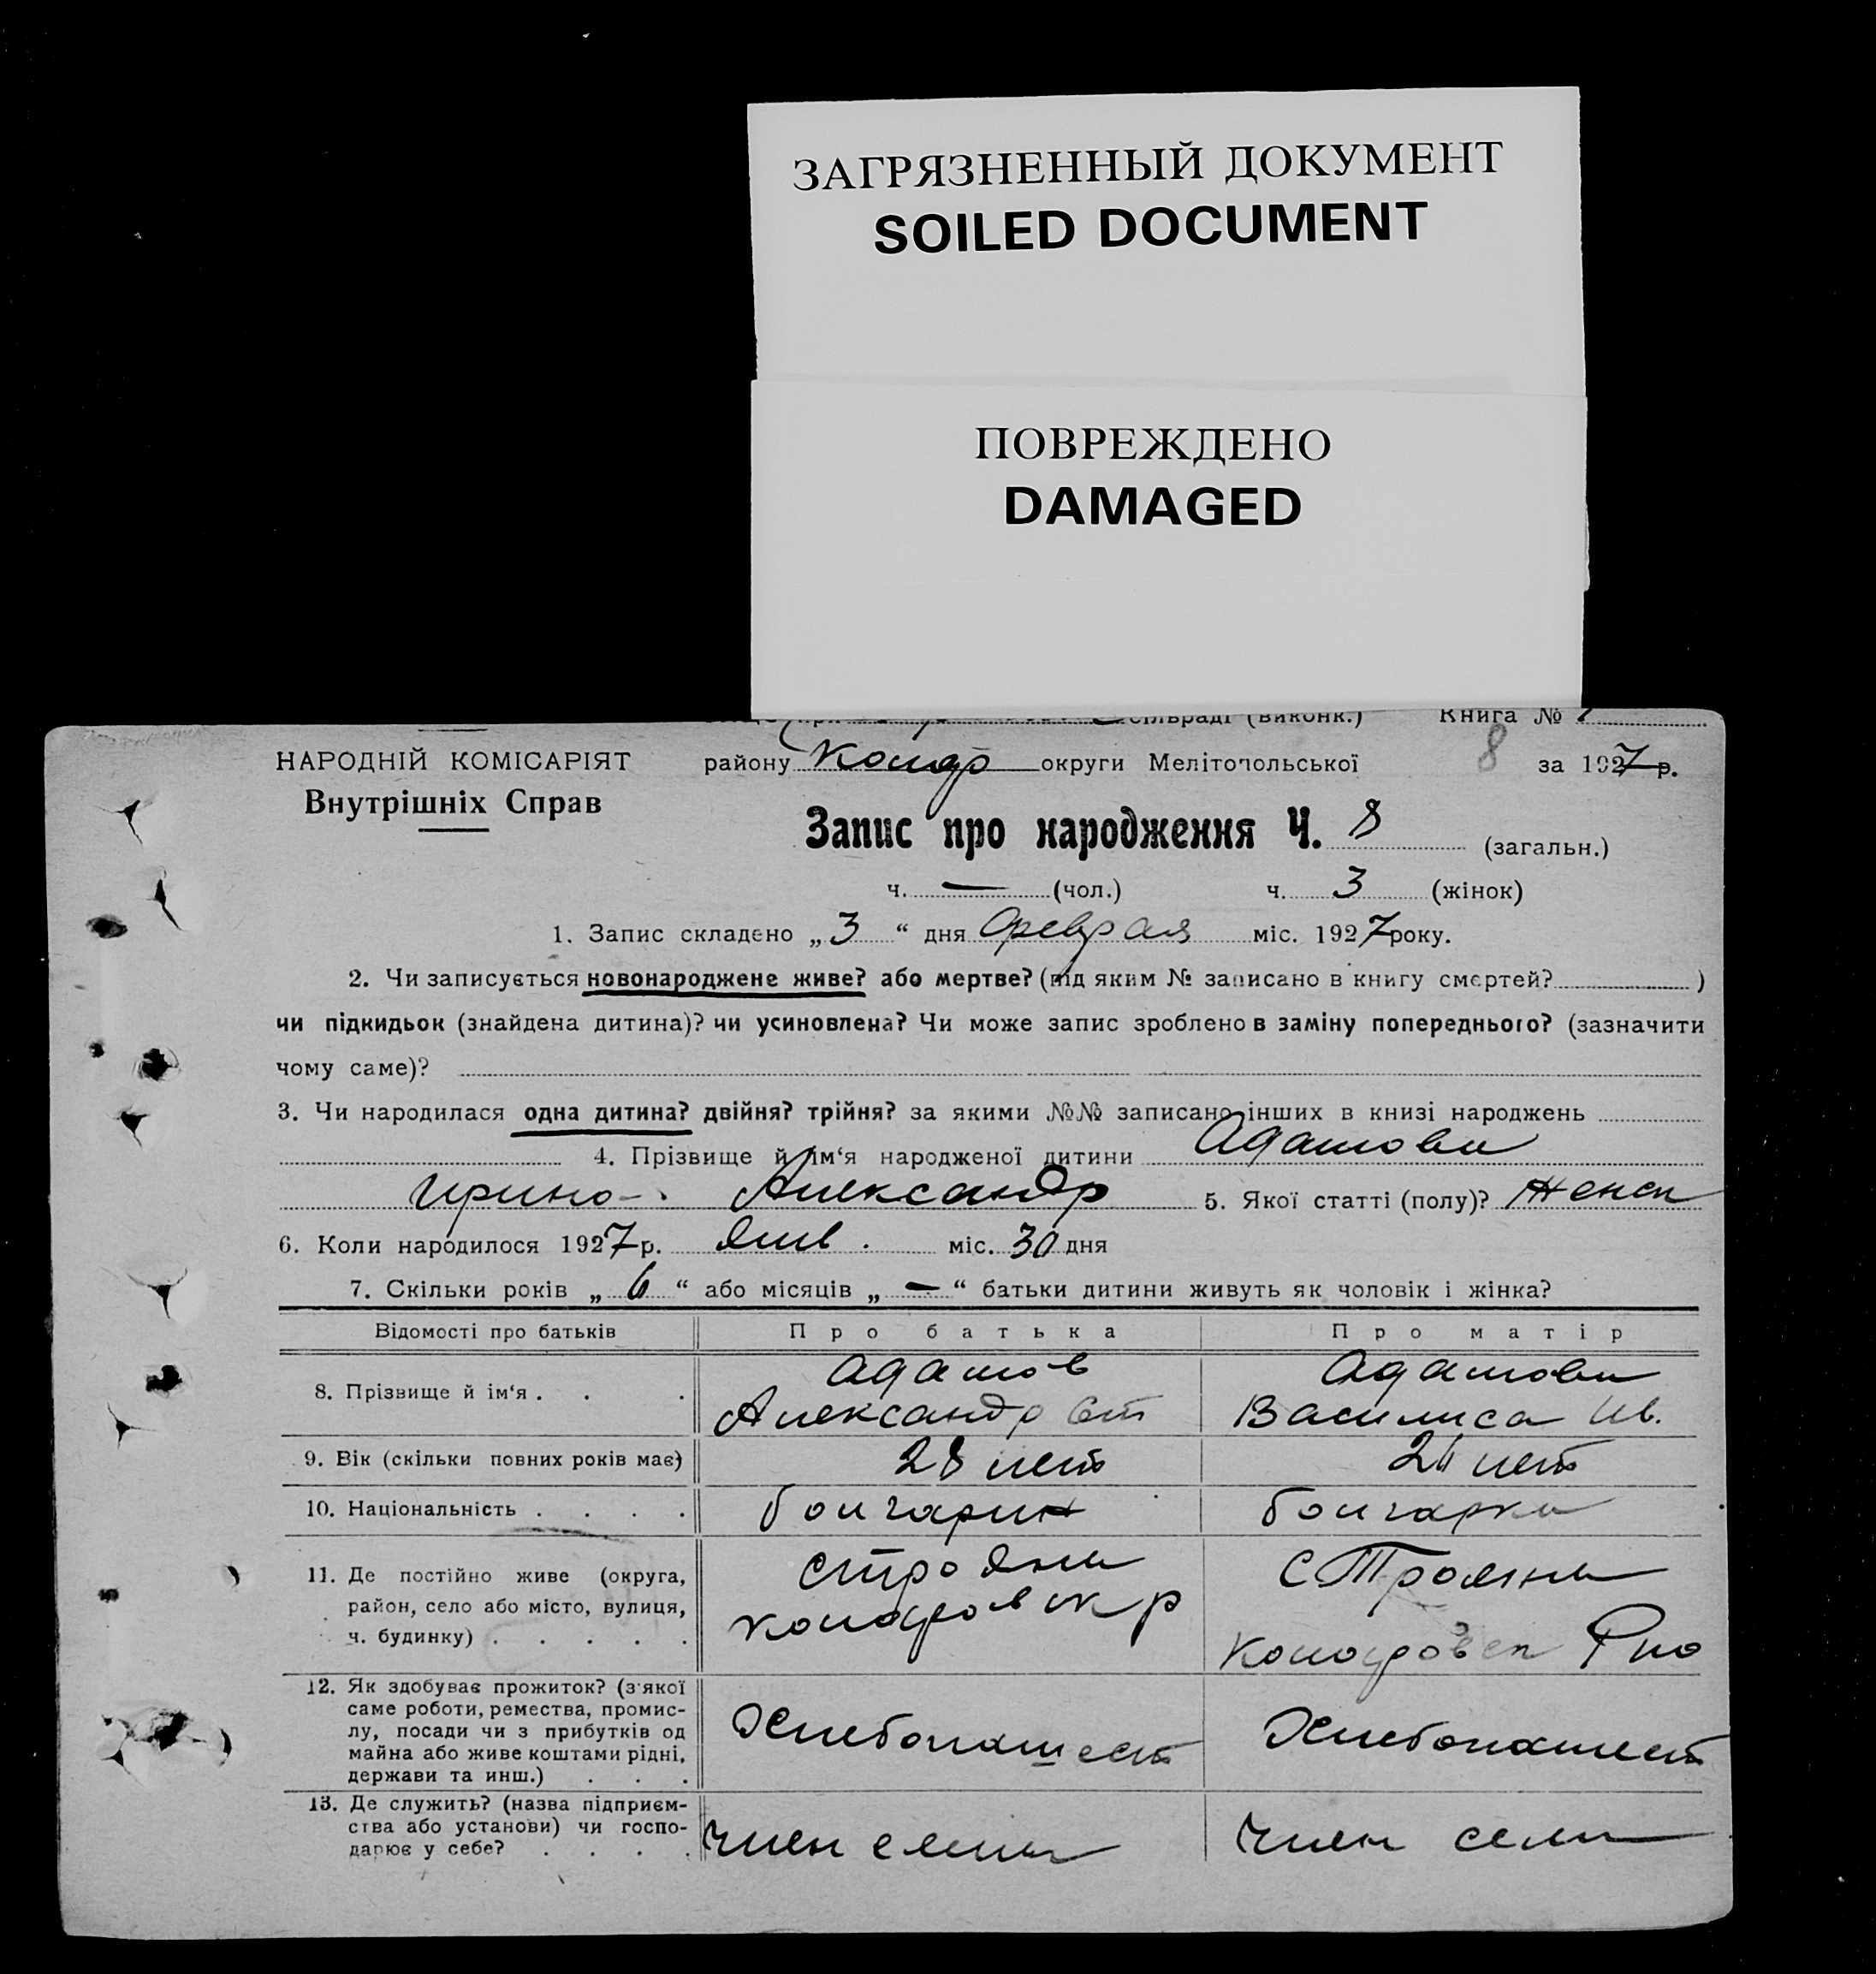 ЗАГРЯЗНЕННЫЙ ДОКУМЕНТ
SOILED DOCUMENT
ПОВРЕЖДЕНО
DAMAGED
сільраді (виконк.) Книга №
НАРОДНІЙ КОМІСАРІЯТ
Внутрішніх Справ
району округи Мелітопольської 8 за 1927 р.
Запис про народження Ч. 8 (загальн.)
ч. — (чол.) ч. 3 (жінок)
1. Запис складено „3“ дня Февраля міс. 1927 року.
2. Чи записується новонароджене живе? або мертве? (під яким № записано в книгу смертей? )
чи підкидьок (знайдена дитина)? чи усиновлена? Чи може запис зроблено в заміну попереднього? (зазначити
чому саме)?
3. Чи народилася одна дитина? двійня? трійня? за якими №№ записано інших в книзі народжень
4. Прізвище й ім‘я народженої дитини Адамова
Ирина Александр 5. Якої статті (полу)? Женск
6. Коли народилося 1927 р. Янв. міс. 30 дня
7. Скільки років „6“ або місяців „—“ батьки дитини живуть як чоловік і жінка?
Відомості про батьків Про батька Про матір
8. Прізвище й ім‘я . . . Адамов Адамова
Александр Ст Василиса Ив.
9. Вік (скільки повних років має) 28 лет лет
10. Національність . . . . болгарин болгарка
11. Де постійно живе (округа, с Трояни с Трояни
район, село або місто, вулиця,
ч. будинку) . . . . .
12. Як здобуває прожиток? (з якої
саме роботи, ремества, промис-
лу, посади чи з прибутків од Хлебопашест Хлебопашест
майна або живе коштами рідні,
держави та инш.) . . .
13. Де служить? (назва підприєм-
ства або установи) чи госпо- член семи член семи
дарює у себе? . . . .